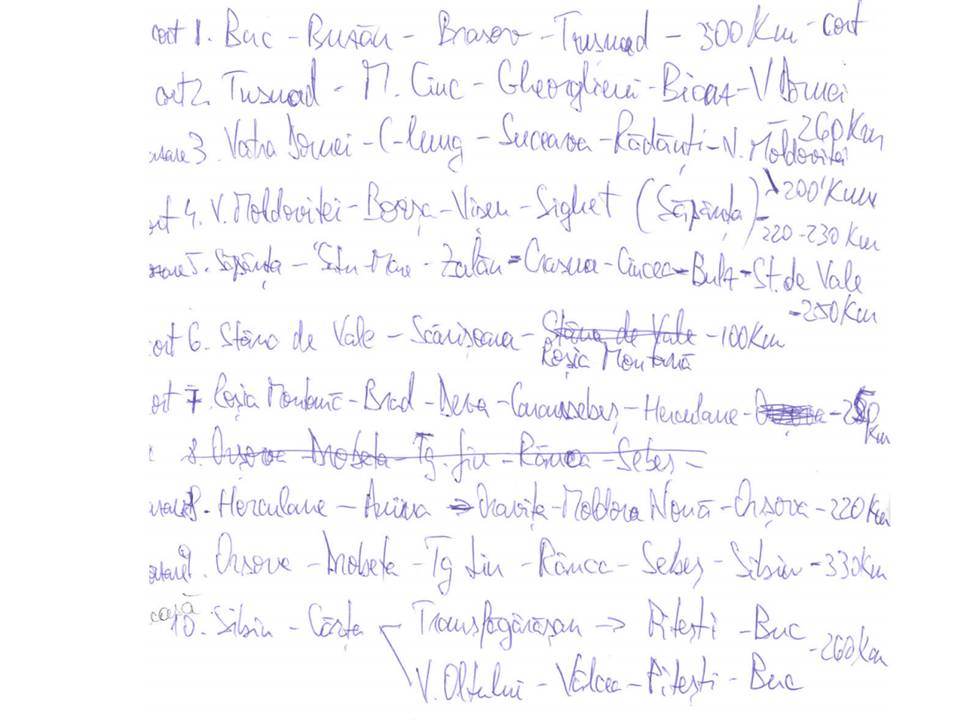 cort 1. Buc - Buzău - Brasov - Tusnad - 300 Km - cort
cort 2. Tusnad - M. Ciuc - Gheorghieni - Bicaz - V Dornei
- 260 Km
3. Vatra Dornei - C-lung - Suceava - Rădăuți - V. Moldovitei
- 200 Km
ort 4. V. Moldovitei - Borșa - Viseu - Sighet (Săpânța)
- 220 - 230 Km
5. Săpânța - Satu Mare - Zalău - Crasna - Ciucea - Bulz - St. de Vale
- 250 Km
ort 6. Stâna de Vale - Scărișoara - Stâna de Vale - 100 Km
Roșia Montană
ort 7. Roșia Montană - Brad - Deva - Caransebeș - Herculane - Km
8. Orșova - Drobeta - Tg. Jiu - Rânca - Sebeș -
8. Herculane - Anina - Oravița - Moldova Nouă - Orșova - 220 Km
9. Orsova - Drobeta - Tg Jiu - Rânca - Sebeș - Sibiu - 330 Km
casă
10. Sibiu - Cârța - Transfăgărășan -> Pitești - Buc
- 260 Km
V. Oltului - Vâlcea - Pitești - Buc